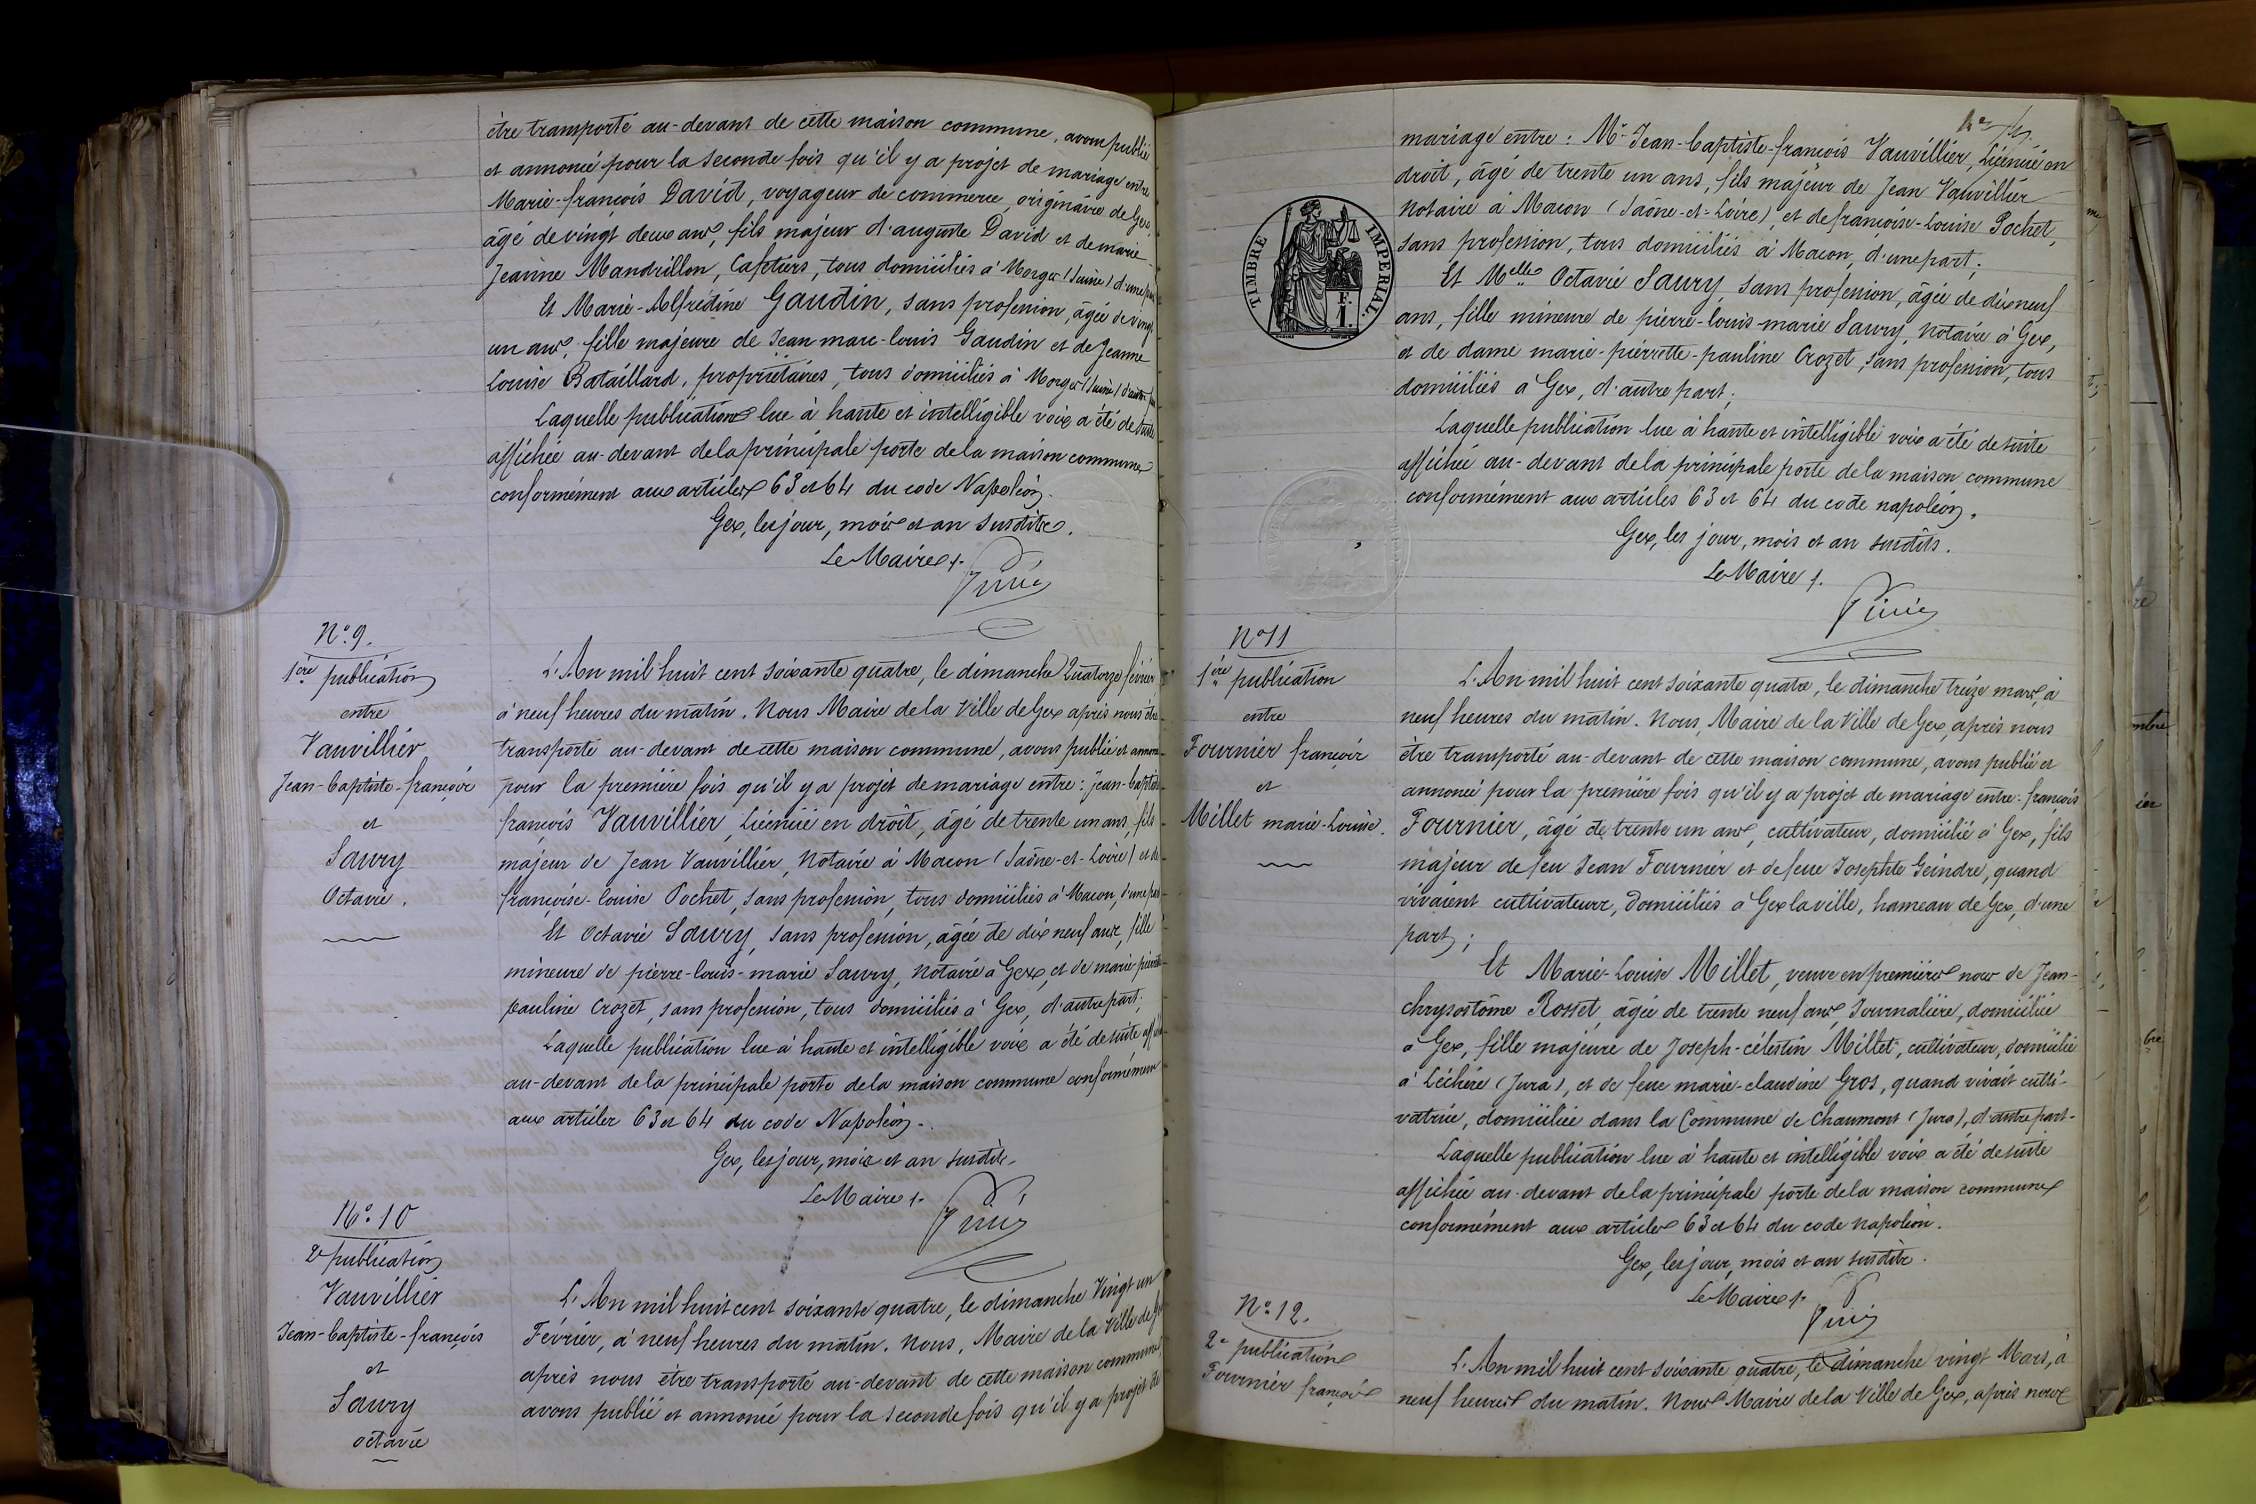 être transporté au-devant de cette maison commune, avons publié
et annoncé pour la seconde fois qu'il y a projet de mariage entre
Marie-françois David, voyageur de commerce, originaire de Gex,
âgé de vingt deux ans, fils majeur d'auguste David et de marie-
Jeanne Mandrillon, Cafetiers, tous domiciliés à Morges (Suisse) d'une part
Et Marie-Alfrédine Gaudin, sans profession, âgée de vingt
un ans, fille majeure de Jean marc-louis Gaudin et de Jeanne
Louise Bataillard, propriétaires, tous domiciliés à Morges (Suisse) d'autre part
Laquelle publication lue à haute et intelligible voix a été de suite
affichée au-devant de la principale porte de la maison commune
conformément aux articles 63 et 64 du code Napoléon.
Gex, les jour, mois et an susdits.
Le Maire /.
N° 9.
1ère publication
entre
Vauvillier
Jean-baptiste-françois
et
Saury
Octavie.
L'An mil huit cent soixante quatre, le dimanche Quatorze février
à neuf heures du matin. Nous Maire de la Ville de Gex après nous être
transporté au-devant de cette maison commune, avons publié et annoncé
pour la première fois qu'il y a projet de mariage entre: Jean-baptiste
françois Vauvillier, Licencié en droit, âgé de trente un ans, fils
majeur de Jean Vauvillier, Notaire à Macon (Saône-et-Loire) et de
françoise-louise Pochet, sans profession, tous domiciliés à Macon, d'une part
Et Octavie Saury, sans profession, âgée de dix neuf ans, fille
mineure de pierre-louis-marie Saury, notaire à Gex, et de marie pierrette
pauline Crozet, sans profession, tous domiciliés à Gex, d'autre part;
Laquelle publication lue à haute et intelligible voix a été de suite affichée
au-devant de la principale porte de la maison commune conformément
aux articles 63 et 64 du code Napoléon.
Gex, les jour, mois et an susdits.
Le Maire /.
N° 10
2e publication
Vauvillier
Jean-baptiste-françois
et
Saury
octavie
L'An mil huit cent soixante quatre, le dimanche Vingt un
Février, à neuf heures du matin. Nous, Maire de la Ville de Gex
après nous être transporté au-devant de cette maison commune,
avons publié et annoncé pour la seconde fois qu'il y a projet de
mariage entre: Mr Jean-baptiste-françois Vauvillier, Licencié en
droit, âgé de trente un ans, fils majeur de Jean Vauvillier
Notaire à Macon (Saône-et-Loire), et de françoise-Louise Pochet,
sans profession, tous domiciliés à Macon, d'une part;
Et Melle Octavie Saury, sans profession, âgée de dix neuf
ans, fille mineure de pierre-louis-marie Saury, notaire à Gex,
et de dame marie-pierrette-pauline Crozet, sans profession, tous
domiciliés à Gex, d'autre part;
Laquelle publication lue à haute et intelligible voix a été de suite
affichée au-devant de la principale porte de la maison commune
conformément aux articles 63 et 64 du code napoléon.
Gex, les jour, mois et an susdits.
Le Maire /.
TIMBRE IMPERIAL
N° 11
1ère publication
entre
Fournier françois
et
Millet marie-Louise.
L'An mil huit cent soixante quatre, le dimanche treize mars, à
neuf heures du matin. Nous, Maire de la Ville de Gex, après nous
être transporté au-devant de cette maison commune, avons publié et
annoncé pour la première fois qu'il y a projet de mariage entre: françois
Fournier, âgé de trente un ans, cultivateur, domicilié à Gex, fils
majeur de feu Jean Fournier et de feue Josephte Geindre, quand
vivaient cultivateurs, domiciliés à Gex la ville, hameau de Gex, d'une
part;
Et Marie-Louise Millet, veuve en premières noces de Jean-
chrysostôme Rosset, âgée de trente neuf ans, Journalière, domiciliée
à Gex, fille majeure de Joseph-célestin Millet, cultivateur, domicilié
à Léchère (Jura), et de feue marie-claudine Gros, quand vivait culti-
vatrice, domiciliée dans la Commune de Chaumont (Jura), d'autre part.
Laquelle publication lue à haute et intelligible voix a été de suite
affichée au-devant de la principale porte de la maison commune
conformément aux articles 63 et 64 du code napoléon.
Gex, les jour, mois et an susdits.
Le Maire /.
N° 12.
2e publication
Fournier françois
L'An mil huit cent soixante quatre, le dimanche vingt Mars, à
neuf heures du matin. Nous Maire de la Ville de Gex, après nous